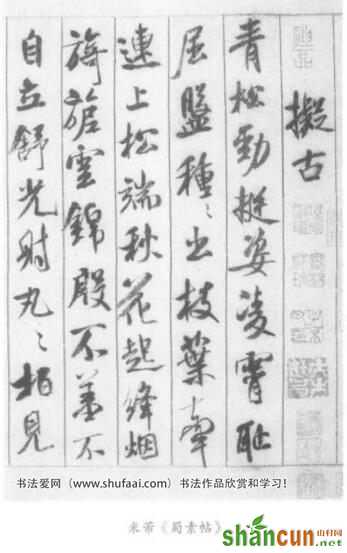 擬古
青松勁挺姿凌霄恥
屈盤種〻出枝葉牽
連上松端秋花起絳烟
旖旎雲錦殷不羞不
自立舒光射丸〻柏見
书法爱网（www.shufaai.com）书法作品欣赏和学习!
米芾《蜀素帖》
shancun 山村网
.net